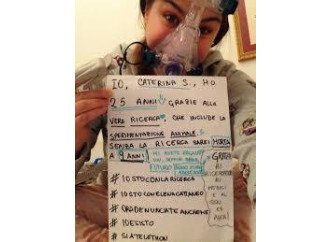 IO, CATERINA S., HO
25 ANNI GRAZIE ALLA
VERA RICERCA, CHE INCLUDE LA
SPERIMENTAZIONE ANIMALE.
SENZA LA RICERCA SAREI MORTA
A 9 ANNI
GRAZIE
AI
RICERCATORI
# IOSTOCONLARICERCA
# IOSTOCONELENACATTANEO
# ORADENUNCIATEANCHEME
# IOESISTO
# SIATELETHON